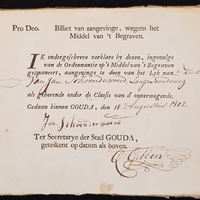 Pro Deo. Billiet van aangevinge, wegens het
Middel van 't Begraven.
IK ondergeschreve verklare by dezen, ingevolge
van de Ordonnantie op 't Middel van 't Begraven
geëmaneert, aangevinge te doen van het Lyk van
Jan
als gehoorende onder de Classis van d'onvermogende.
Gedaan binnen GOUDA, den 18 Augustus 1802
Jan
Ter Secretarye der Stad GOUDA,
geteikent op datum als boven.